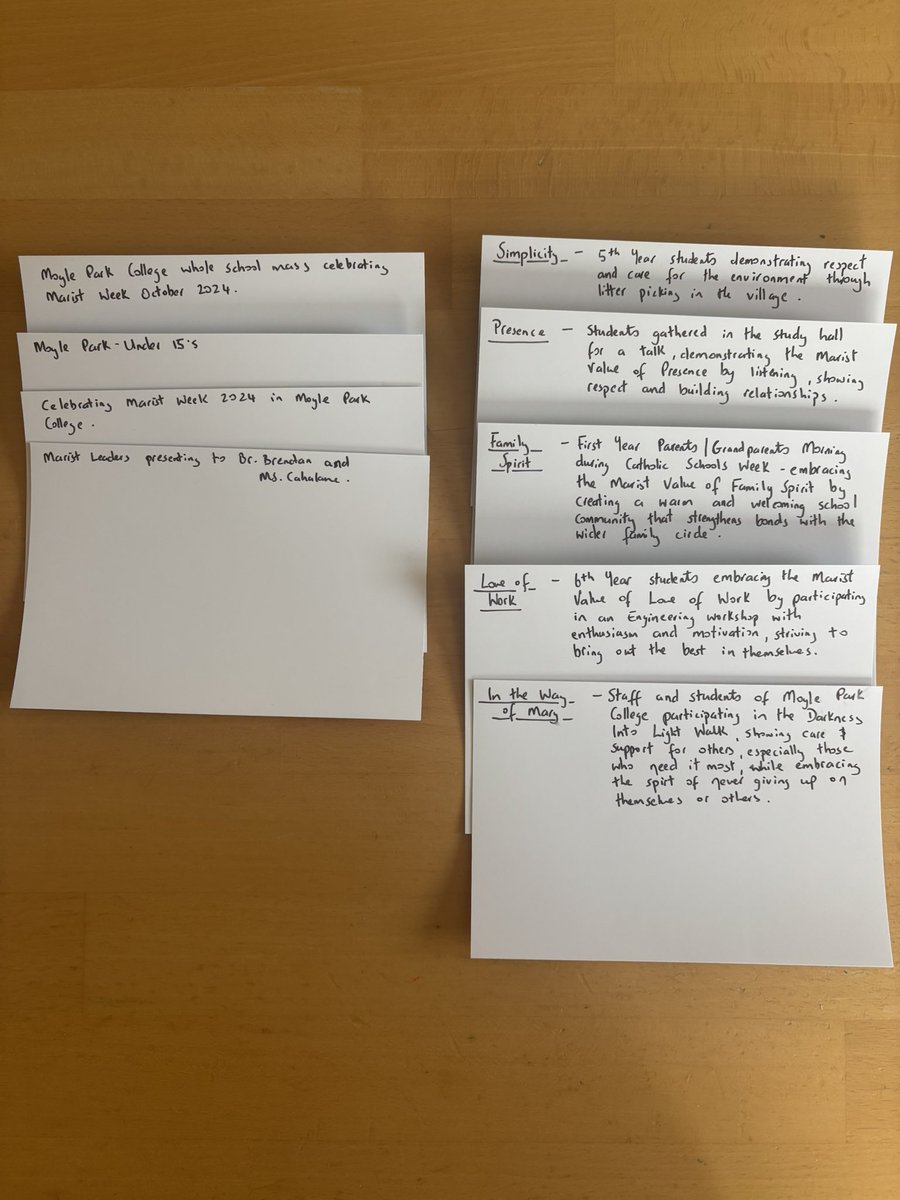 Moyle Park College whole school mass celebrating
Marist Week October 2024.
Moyle Park - Under 15's
Celebrating Marist Week 2024 in Moyle Park
College.
Marist Leaders presenting to Br. Brendan and
Ms. Cahalane.
Simplicity - 5th Year students demonstrating respect
and care for the environment through
litter picking in the village.
Presence - Students gathered in the study hall
for a talk, demonstrating the Marist
Value of Presence by listening, showing
respect and building relationships.
Family - First Year Parents/Grandparents Morning
Spirit during Catholic Schools Week - embracing
the Marist Value of Family Spirit by
creating a warm and welcoming school
community that strengthens bonds with the
wider family circle.
Love of - 6th Year students embracing the Marist
Work Value of Love of Work by participating
in an Engineering workshop with
enthusiasm and motivation, striving to
bring out the best in themselves.
In the Way - Staff and students of Moyle Park
of Mary College participating in the Darkness
Into Light Walk, showing care &
support for others, especially those
who need it most, while embracing
the spirt of never giving up on
themselves or others.